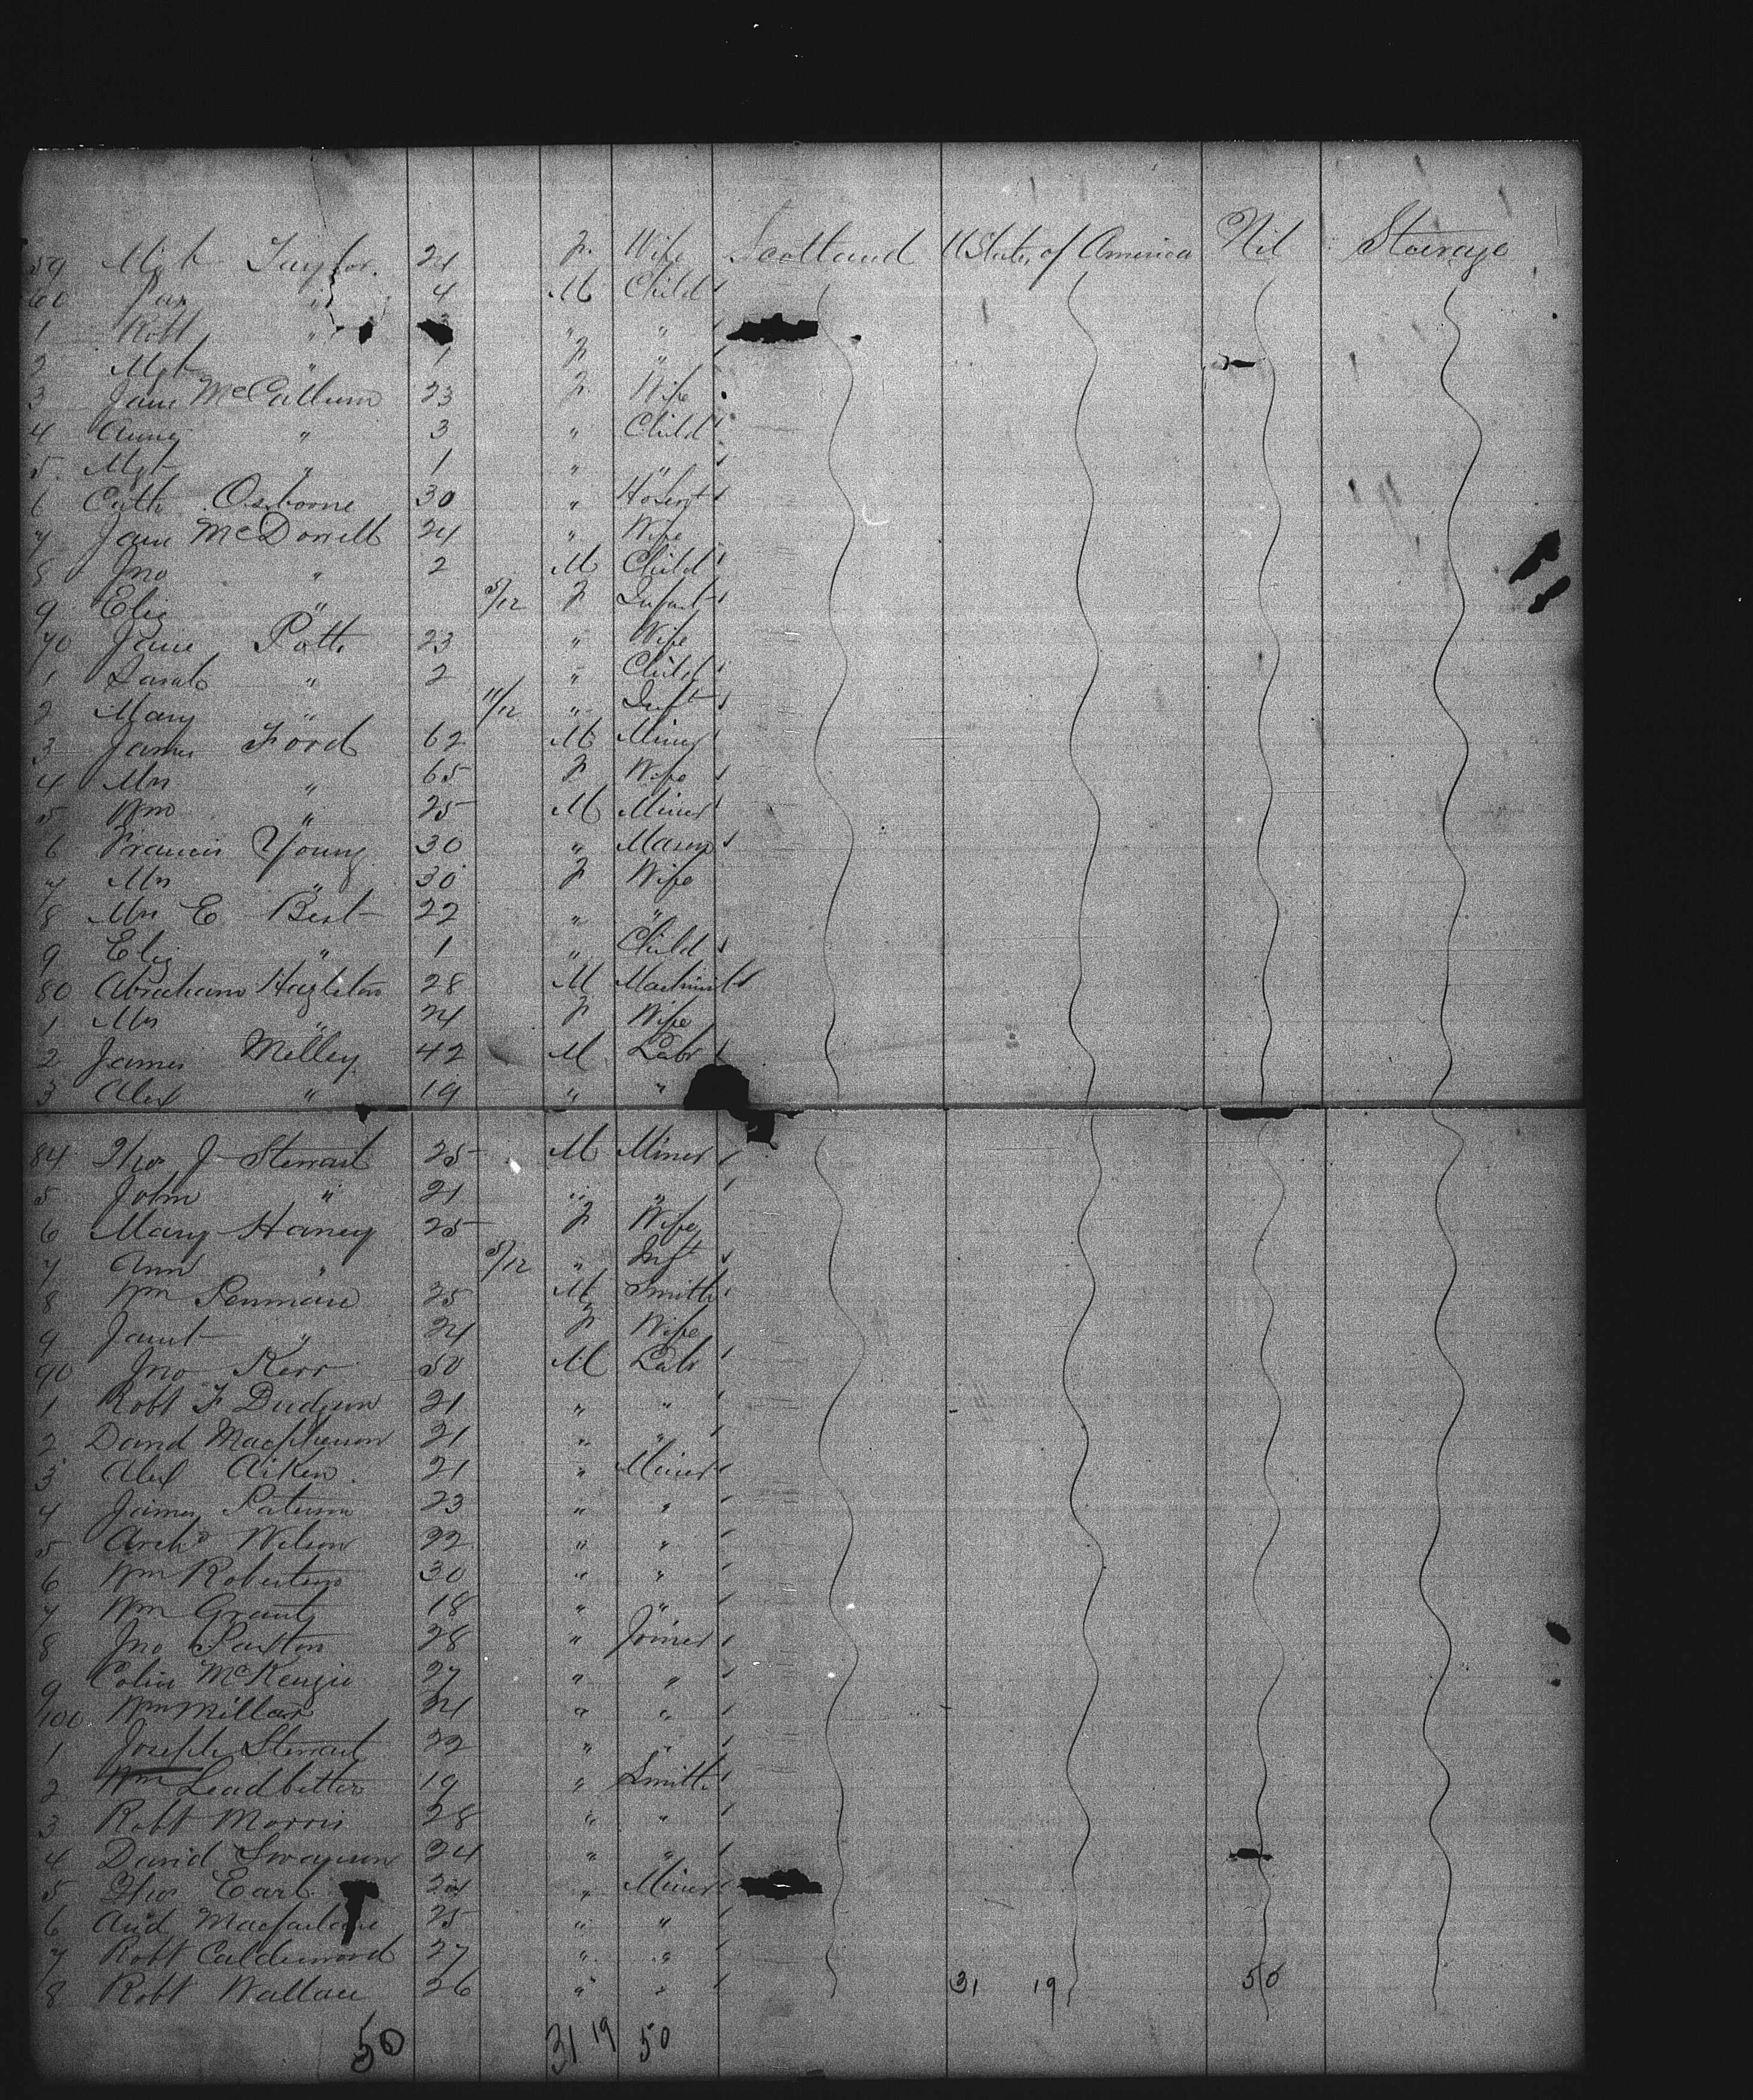 59 Mgt Taylor. 24 F. Wife Scotland U States of America Nil Steerage
60 Jas " 4 M Child
1 Robt " 3 " "
2 Mgt " 1 F "
3 Jane McCallum 23 F. Wife
4 Annie " 3 " Child
5 Mgt " 1 " "
6 Cath Osborne 30 "
7 Jane McDonell 24 " Wife
8 Jno " 2 M Child
9 Eliz " 5/12 F Infant
70 Jane Potts 23 " Wife
1 Sarah " 2 " Child
2 Mary " 11/12 " Inft
3 James Ford 62 M Miner
4 Mrs " 65 F Wife
5 Wm " 25 M Miner
6 Francis Young 30 " Mason
7 Mrs " 30 F Wife
8 Mrs E Best 22 " "
9 Eliz " 1 " Child
80 Abraham Hazleton 28 M Machinist
1 Mrs " 24 F Wife
2 James Milley 42 M Labr
3 Alex " 19 " "
84 Thos J Stewart 25 M Miner
5 John " 21 " "
6 Mary Haney 25 F Wife
7 Ann " 5/12 " Inft
8 Wm Penman 25 M Smith
9 Janet " 24 F Wife
90 Jno Kerr 50 M Labr
1 Robt F Dudgeon 21 " "
2 David Macpherson 21 " "
3 Alex Aiken. 21 " Miner
4 James Paterson 23 " "
5 Archd Wilson 22 " "
6 Wm Robertson 30 " "
7 Wm Grant 18 " "
8 Jno Paxton 28 " Joiner
9 Colin McKenzie 27 " "
100 Wm Millar 24 " "
1 Joseph Stewart 22 " "
2 Wm Leadbetter 19 " Smith
3 Robt Morris 28 " "
4 David Swanson 24 " "
5 Thos Earl 24 " Miner
6 And Macfarlane 25 " "
7 Robt Calderwood 27 " "
8 Robt Wallace 26 " " 31 19 50
50 31 19 50